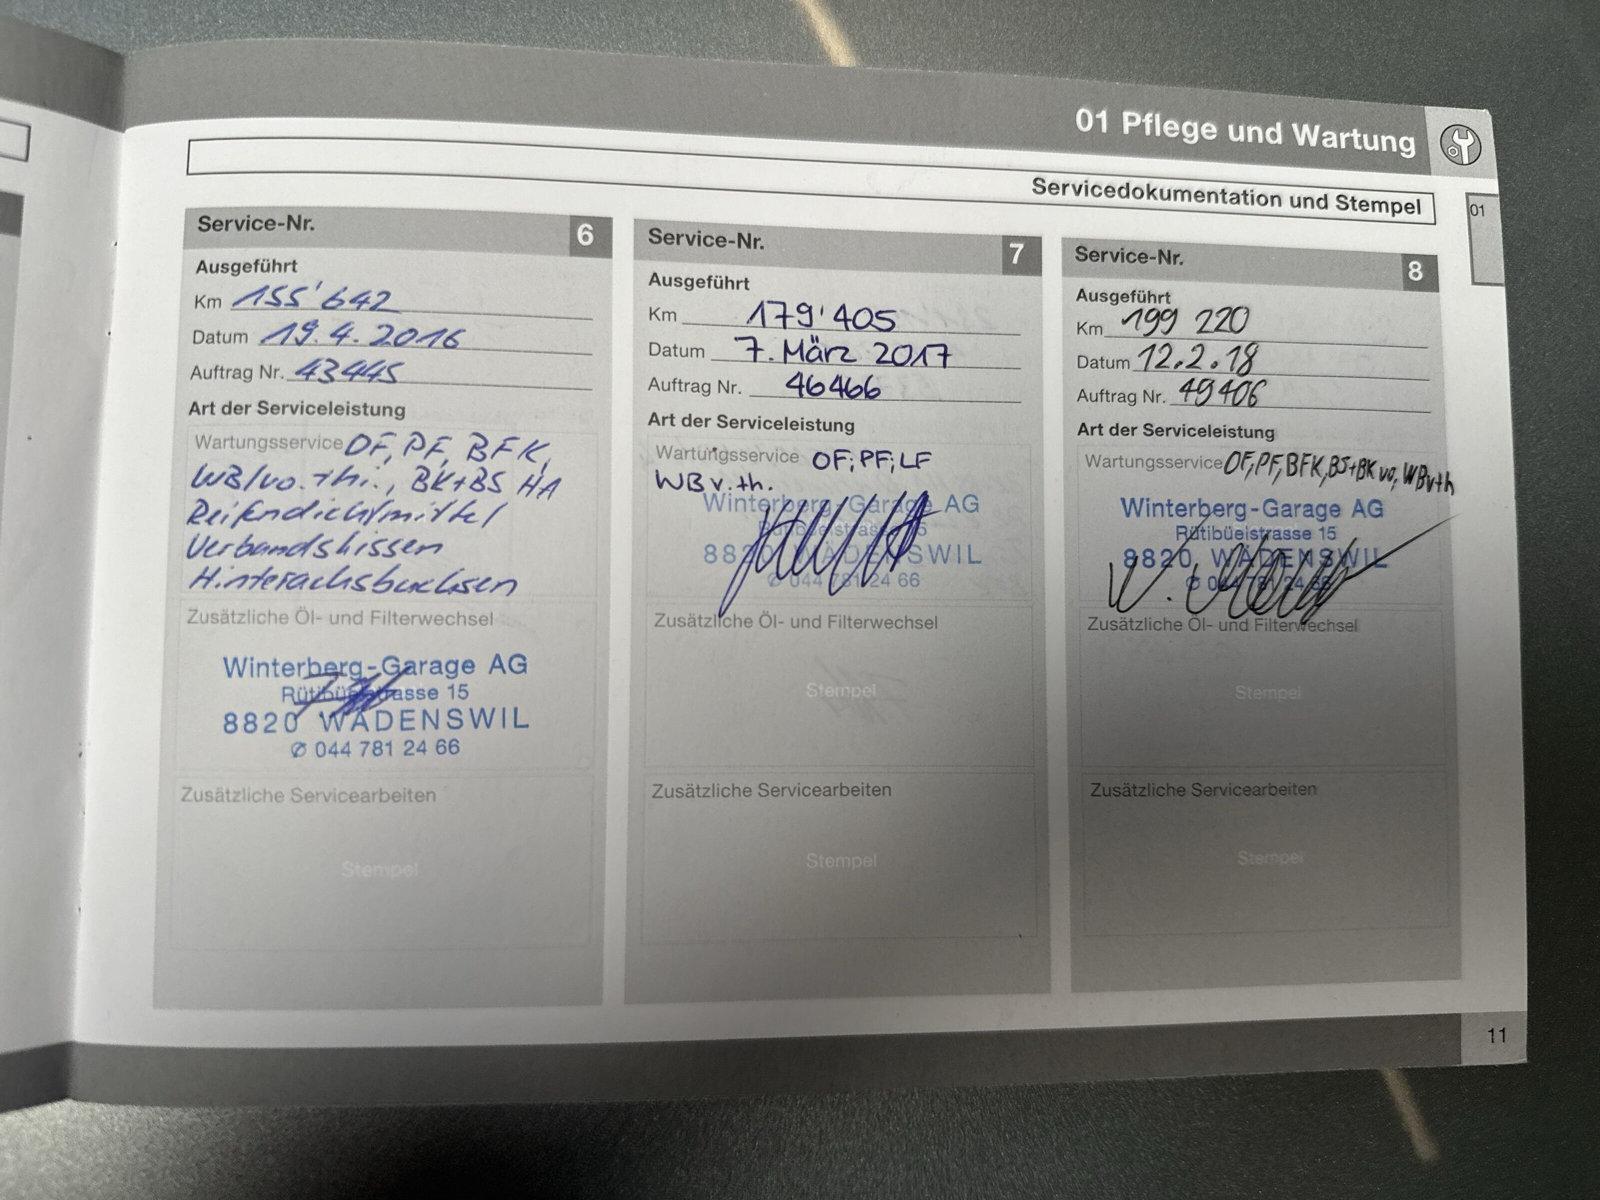 01 Pflege und Wartung
Servicedokumentation und Stempel
01
Service-Nr. 6
Ausgeführt
Km 155'642
Datum 19.4.2016
Auftrag Nr. 43445
Art der Serviceleistung
Wartungsservice OF, PF, BFK,
WB/vo.+hi., BK+BS HA
Reifendichtmittel
Verbandskissen
Hinterachsbuchsen
Zusätzliche Öl- und Filterwechsel
Winterberg-Garage AG
Rütibüelstrasse 15
8820 WÄDENSWIL
✆ 044 781 24 66
Zusätzliche Servicearbeiten
Stempel
Service-Nr. 7
Ausgeführt
Km 179'405
Datum 7. März 2017
Auftrag Nr. 46466
Art der Serviceleistung
Wartungsservice OF; PF; LF
WB v.th.
Winterberg-Garage AG
Rütibüelstrasse 15
8820 WÄDENSWIL
✆ 044 781 24 66
Zusätzliche Öl- und Filterwechsel
Stempel
Zusätzliche Servicearbeiten
Stempel
Service-Nr. 8
Ausgeführt
Km 199 220
Datum 12.2.18
Auftrag Nr. 49406
Art der Serviceleistung
Wartungsservice OF, PF, BFK, BS+BK vo, WB v+h
Winterberg-Garage AG
Rütibüelstrasse 15
8820 WÄDENSWIL
✆ 044 781 24 66
Zusätzliche Öl- und Filterwechsel
Stempel
Zusätzliche Servicearbeiten
Stempel
11